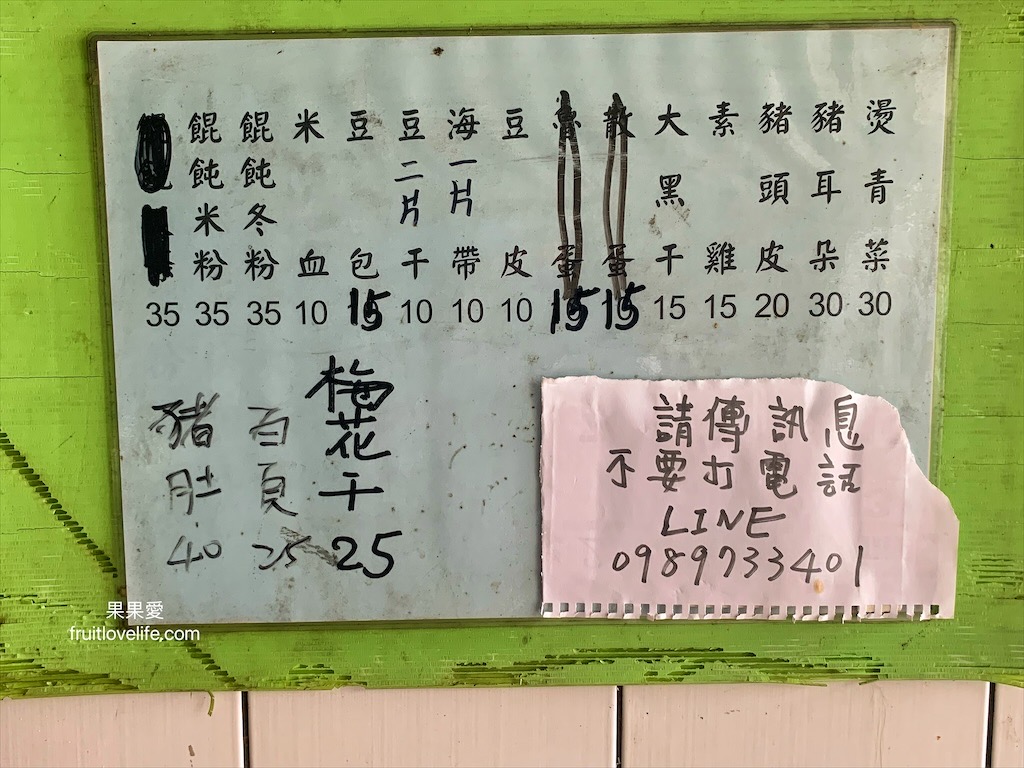 燙青菜 30
豬耳朵 30
豬頭皮 20
素雞 15
大黑干 15
散蛋 15
魯蛋 15
豆皮 10
海一片帶 10
豆二片干 10
豆包 15
米血 10
餛飩冬粉 35
餛飩米粉 35
35
梅花干 25
百頁 25
豬肚 40
請傳訊息
不要打電話
LINE
0989733401
果果愛
fruitlovelife.com